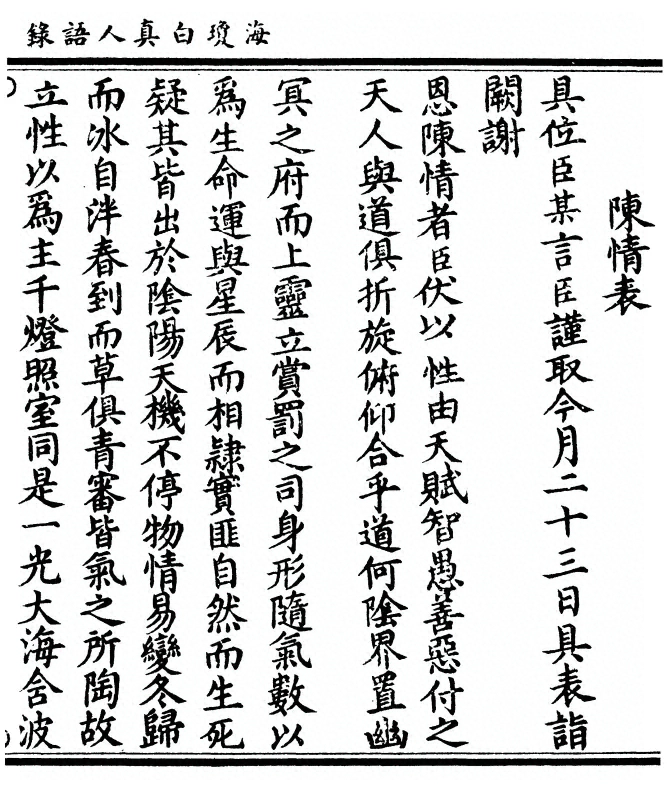 海瓊白真人語錄
陳情表
具位臣某言臣謹取今月二十三日具表詣
闕謝
恩陳情者臣伏以性由天賦智愚善惡付之
天人與道俱折旋俯仰合乎道何陰界置幽
冥之府而上靈立賞罰之司身形隨氣數以
為生命運與星辰而相隸實匪自然而生死
疑其皆出於陰陽天機不停物情易變冬歸
而冰自泮春到而草俱青審皆氣之所陶故
立性以為主千燈照室同是一光大海含波